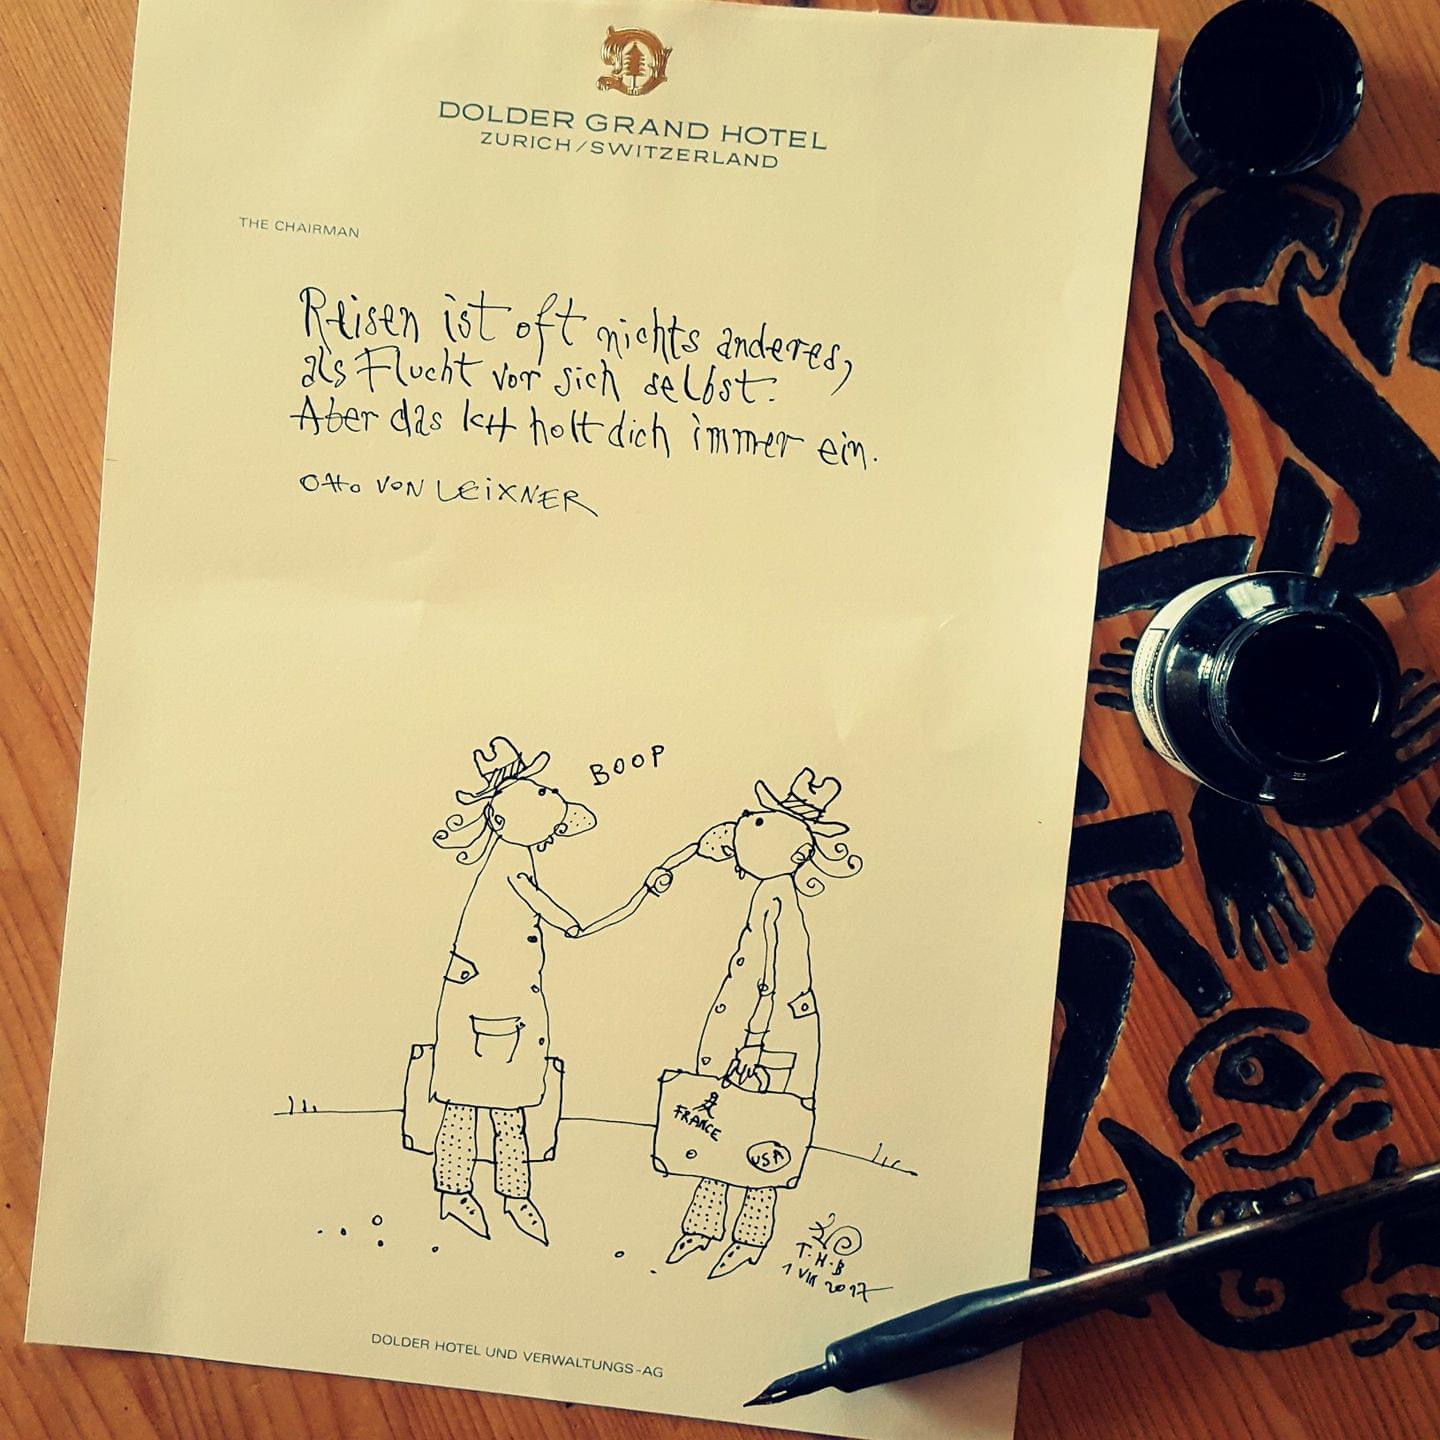 DOLDER GRAND HOTEL
ZURICH/SWITZERLAND
THE CHAIRMAN
Reisen ist oft nichts anderes,
als Flucht vor sich selbst.
Aber das Ich holt dich immer ein.
Otto von LEiXNER
BOOP
FRANCE
USA
T.H.B
1 VIII 2017
DOLDER HOTEL UND VERWALTUNGS-AG